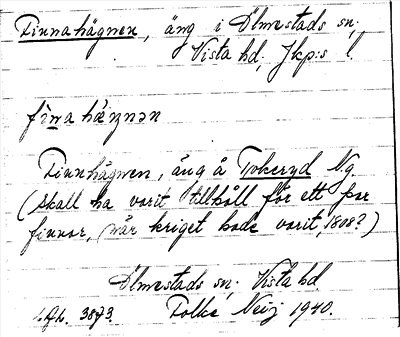 Finnahägnen, äng i Ölmestads sn;
Vista hd, Jkp:s l.
fìnahäŋnən
Finnhägnen, äng å Tokeryd N.g.
(skall ha varit tillhåll för ett par
finnar, når kriget hade varit, 1808?)
Ölmestads sn; Vista hd
3873. Folke Neij 1940.